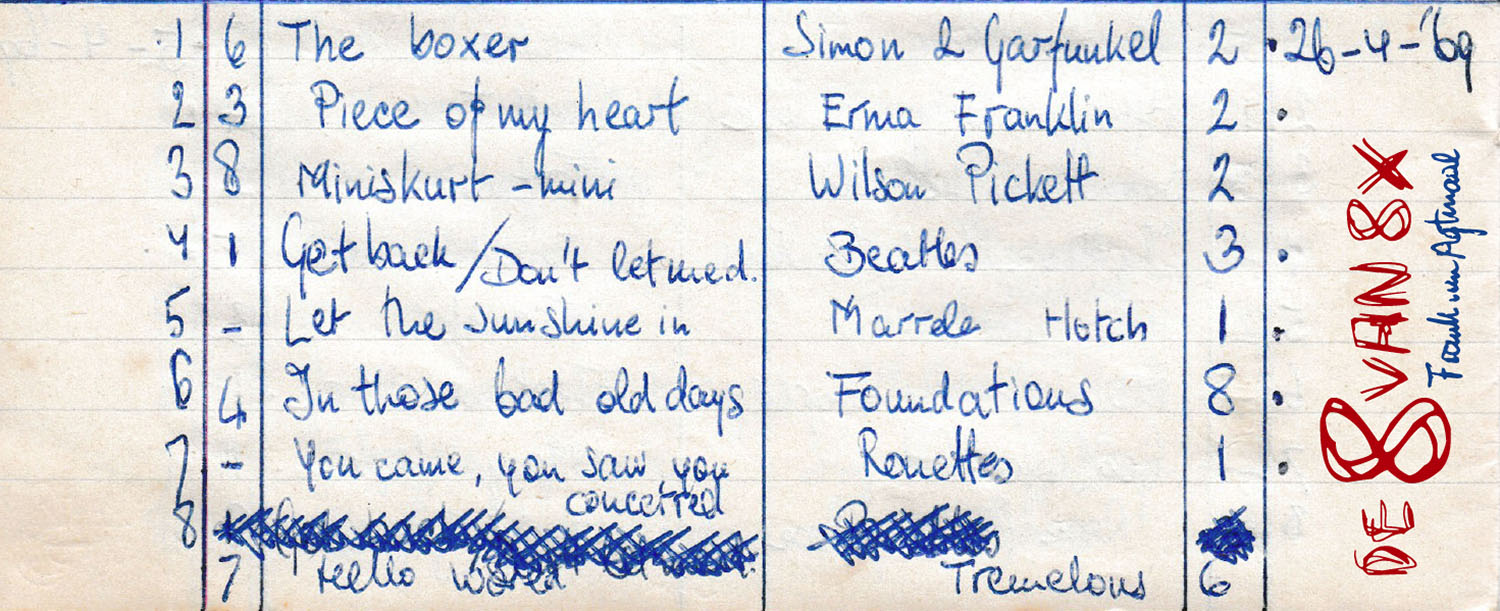 1 6 The boxer Simon & Garfunkel 2 • 26-4-'69
2 3 Piece of my heart Erma Franklin 2 •
3 8 Miniskurt - mini Wilson Pickett 2
4 1 Get back/Don't let me d. Beatles 3 •
5 - Let the sunshine in Marrela Hotch 1 •
6 4 In those bad old days Foundations 8 •
7 - You came, you saw, you Ronettes 1 •
concerred
8
7 Hello world Tremelous 6
DE 8 VAN 8X
Frank van Agtmaal